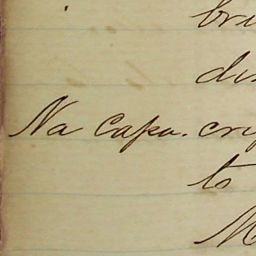 bri
di
Na Capa. cry
to
M